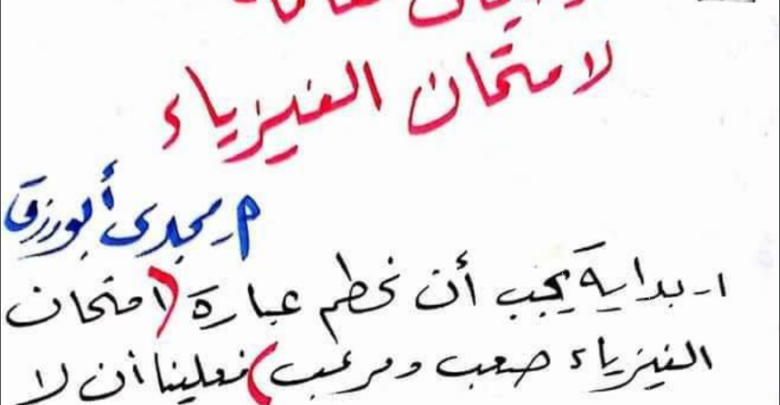 لامتحان الفيزياء
م. مجدى أبورزق
١- بداية يجب أن نحطم عبارة (امتحان
الفيزياء صعب ومرعب) فعلينا أن لا